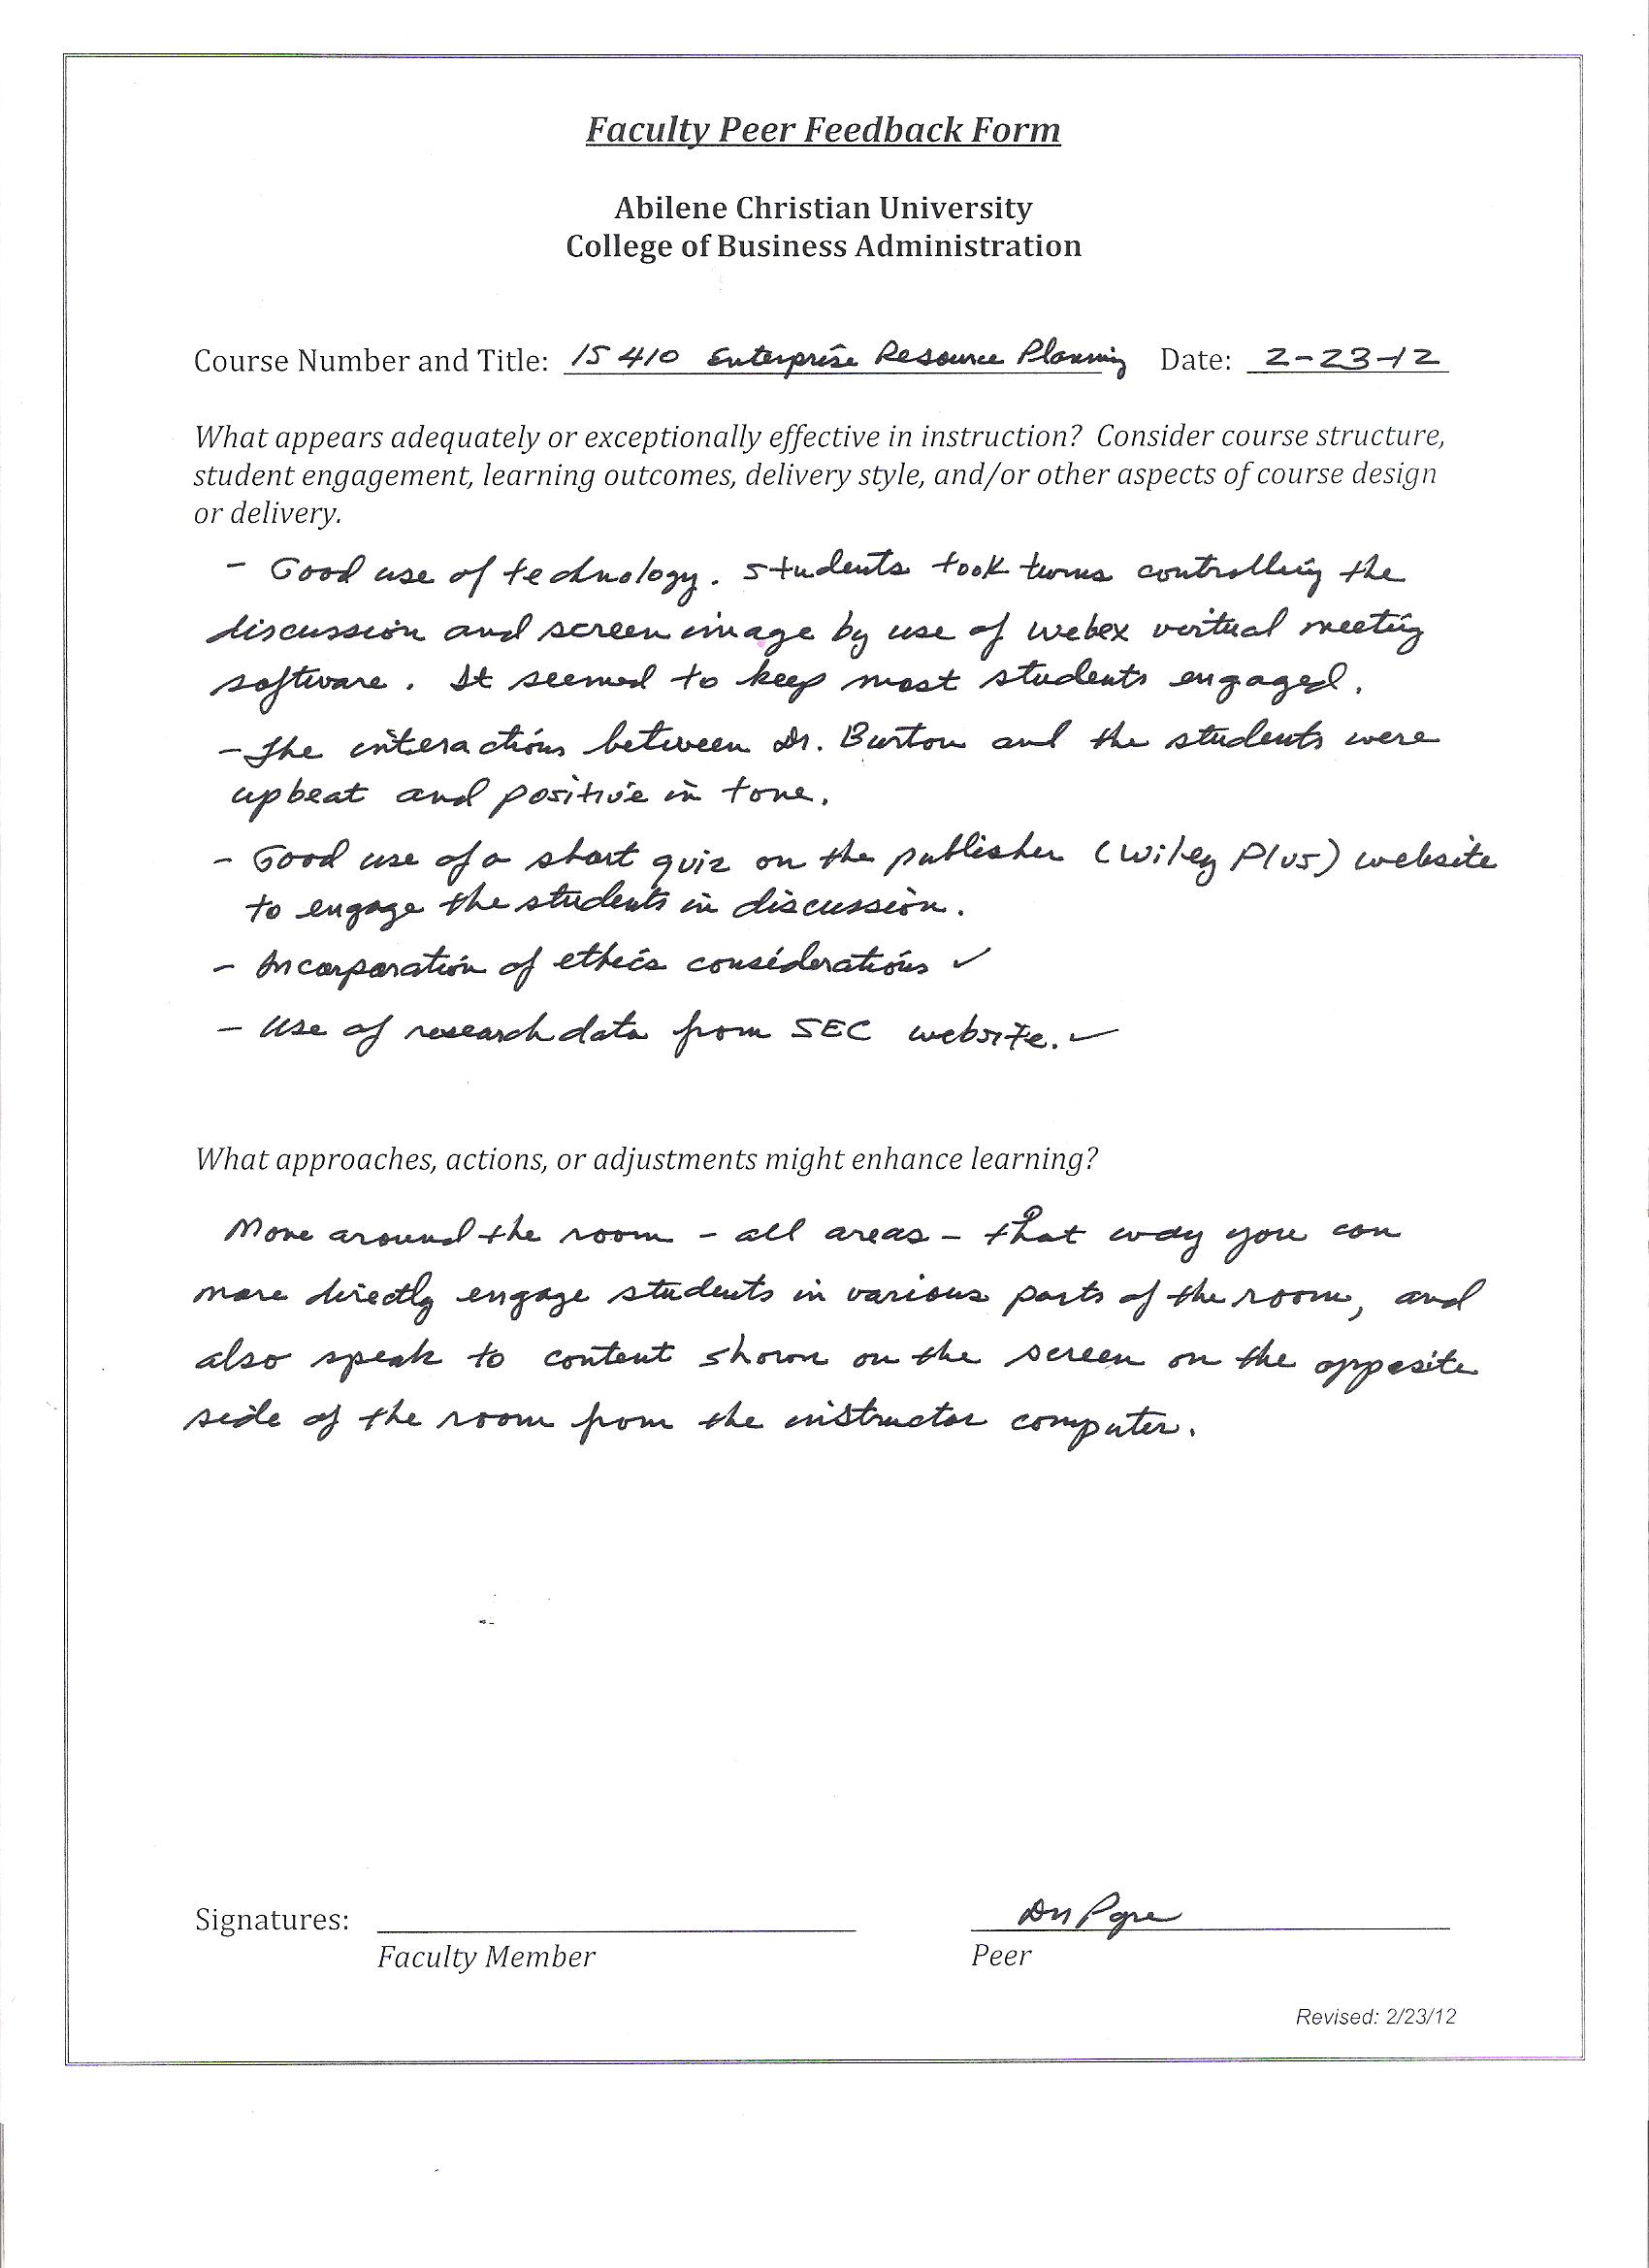 Faculty Peer Feedback Form
Abilene Christian University
College of Business Administration
Course Number and Title: IS 410 Enterprise Resource Planning Date: 2-23-12
What appears adequately or exceptionally effective in instruction? Consider course structure,
student engagement, learning outcomes, delivery style, and/or other aspects of course design
or delivery.
- Good use of technology. Students took turns controlling the
discussion and screen image by use of webex virtual meeting
software. It seemed to keep most students engaged.
- The interactions between Dr. Burton and the students were
upbeat and positive in tone.
- Good use of a short quiz on the publisher (Wiley Plus) website
to engage the students in discussion.
- Incorporation of ethics considerations ✓
- Use of research data from SEC website. ✓
What approaches, actions, or adjustments might enhance learning?
Move around the room - all areas - that way you can
more directly engage students in various parts of the room, and
also speak to content shown on the screen on the opposite
side of the room from the instructor computer.
Signatures:
Faculty Member Peer
Revised: 2/23/12